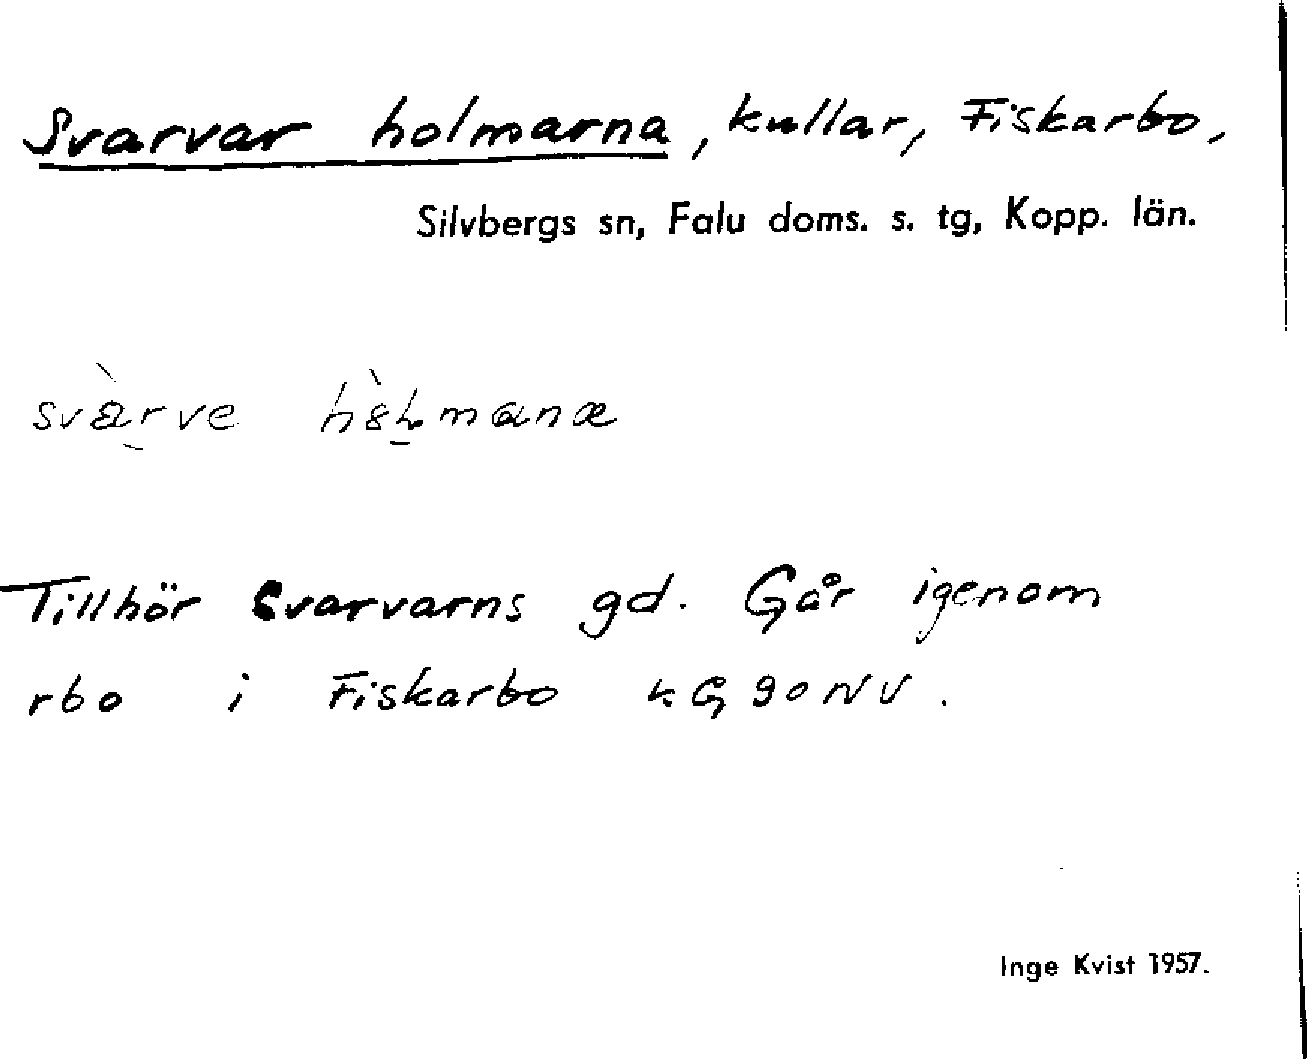 Svarvar holmarna, kullar, Fiskarbo,
Silvbergs sn, Falu doms. s. tg, Kopp. län.
Tillhör Svarvarns gd. Går igenom
rbo i Fiskarbo 90 NV.
Inge Kvist 1957.